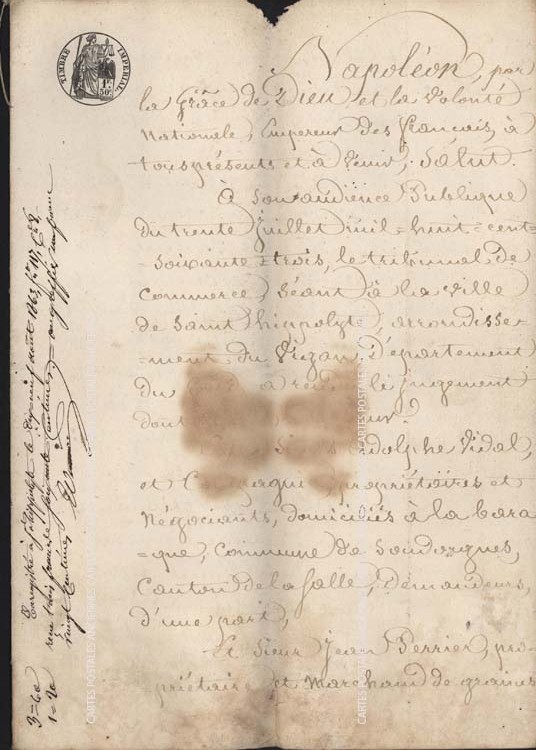 TIMBRE IMPÉRIAL
1F 50C
Napoléon, par
la Grâce de Dieu et la Volonté
Nationale, Empereur des français, à
tous présents et à Venir, Salut.
À Son audience Publique
du trente Juillet mil=huit=cent=
=soixante=trois, le tribunal de
Commerce, Séant à la Ville
de Saint hippolyte, arrondisse=
=ment du Vigan, Département
du a rendu le jugement
dont
adolphe Vidal,
et Compagnie propriétaires et
Négociants, domiciliés à la bara
=que, Commune de Soudorgues,
Canton de la Salle, Demandeurs,
d'une part,
Et Sieur Jean Perrier, pro=
=priétaire et Marchand de grains
Enregistré à St hippolyte le août 1863, f° 117,
reçu trois francs centimes
vingt centimes
3=60
1=20
CARTES POSTALES
CARTES POSTALES